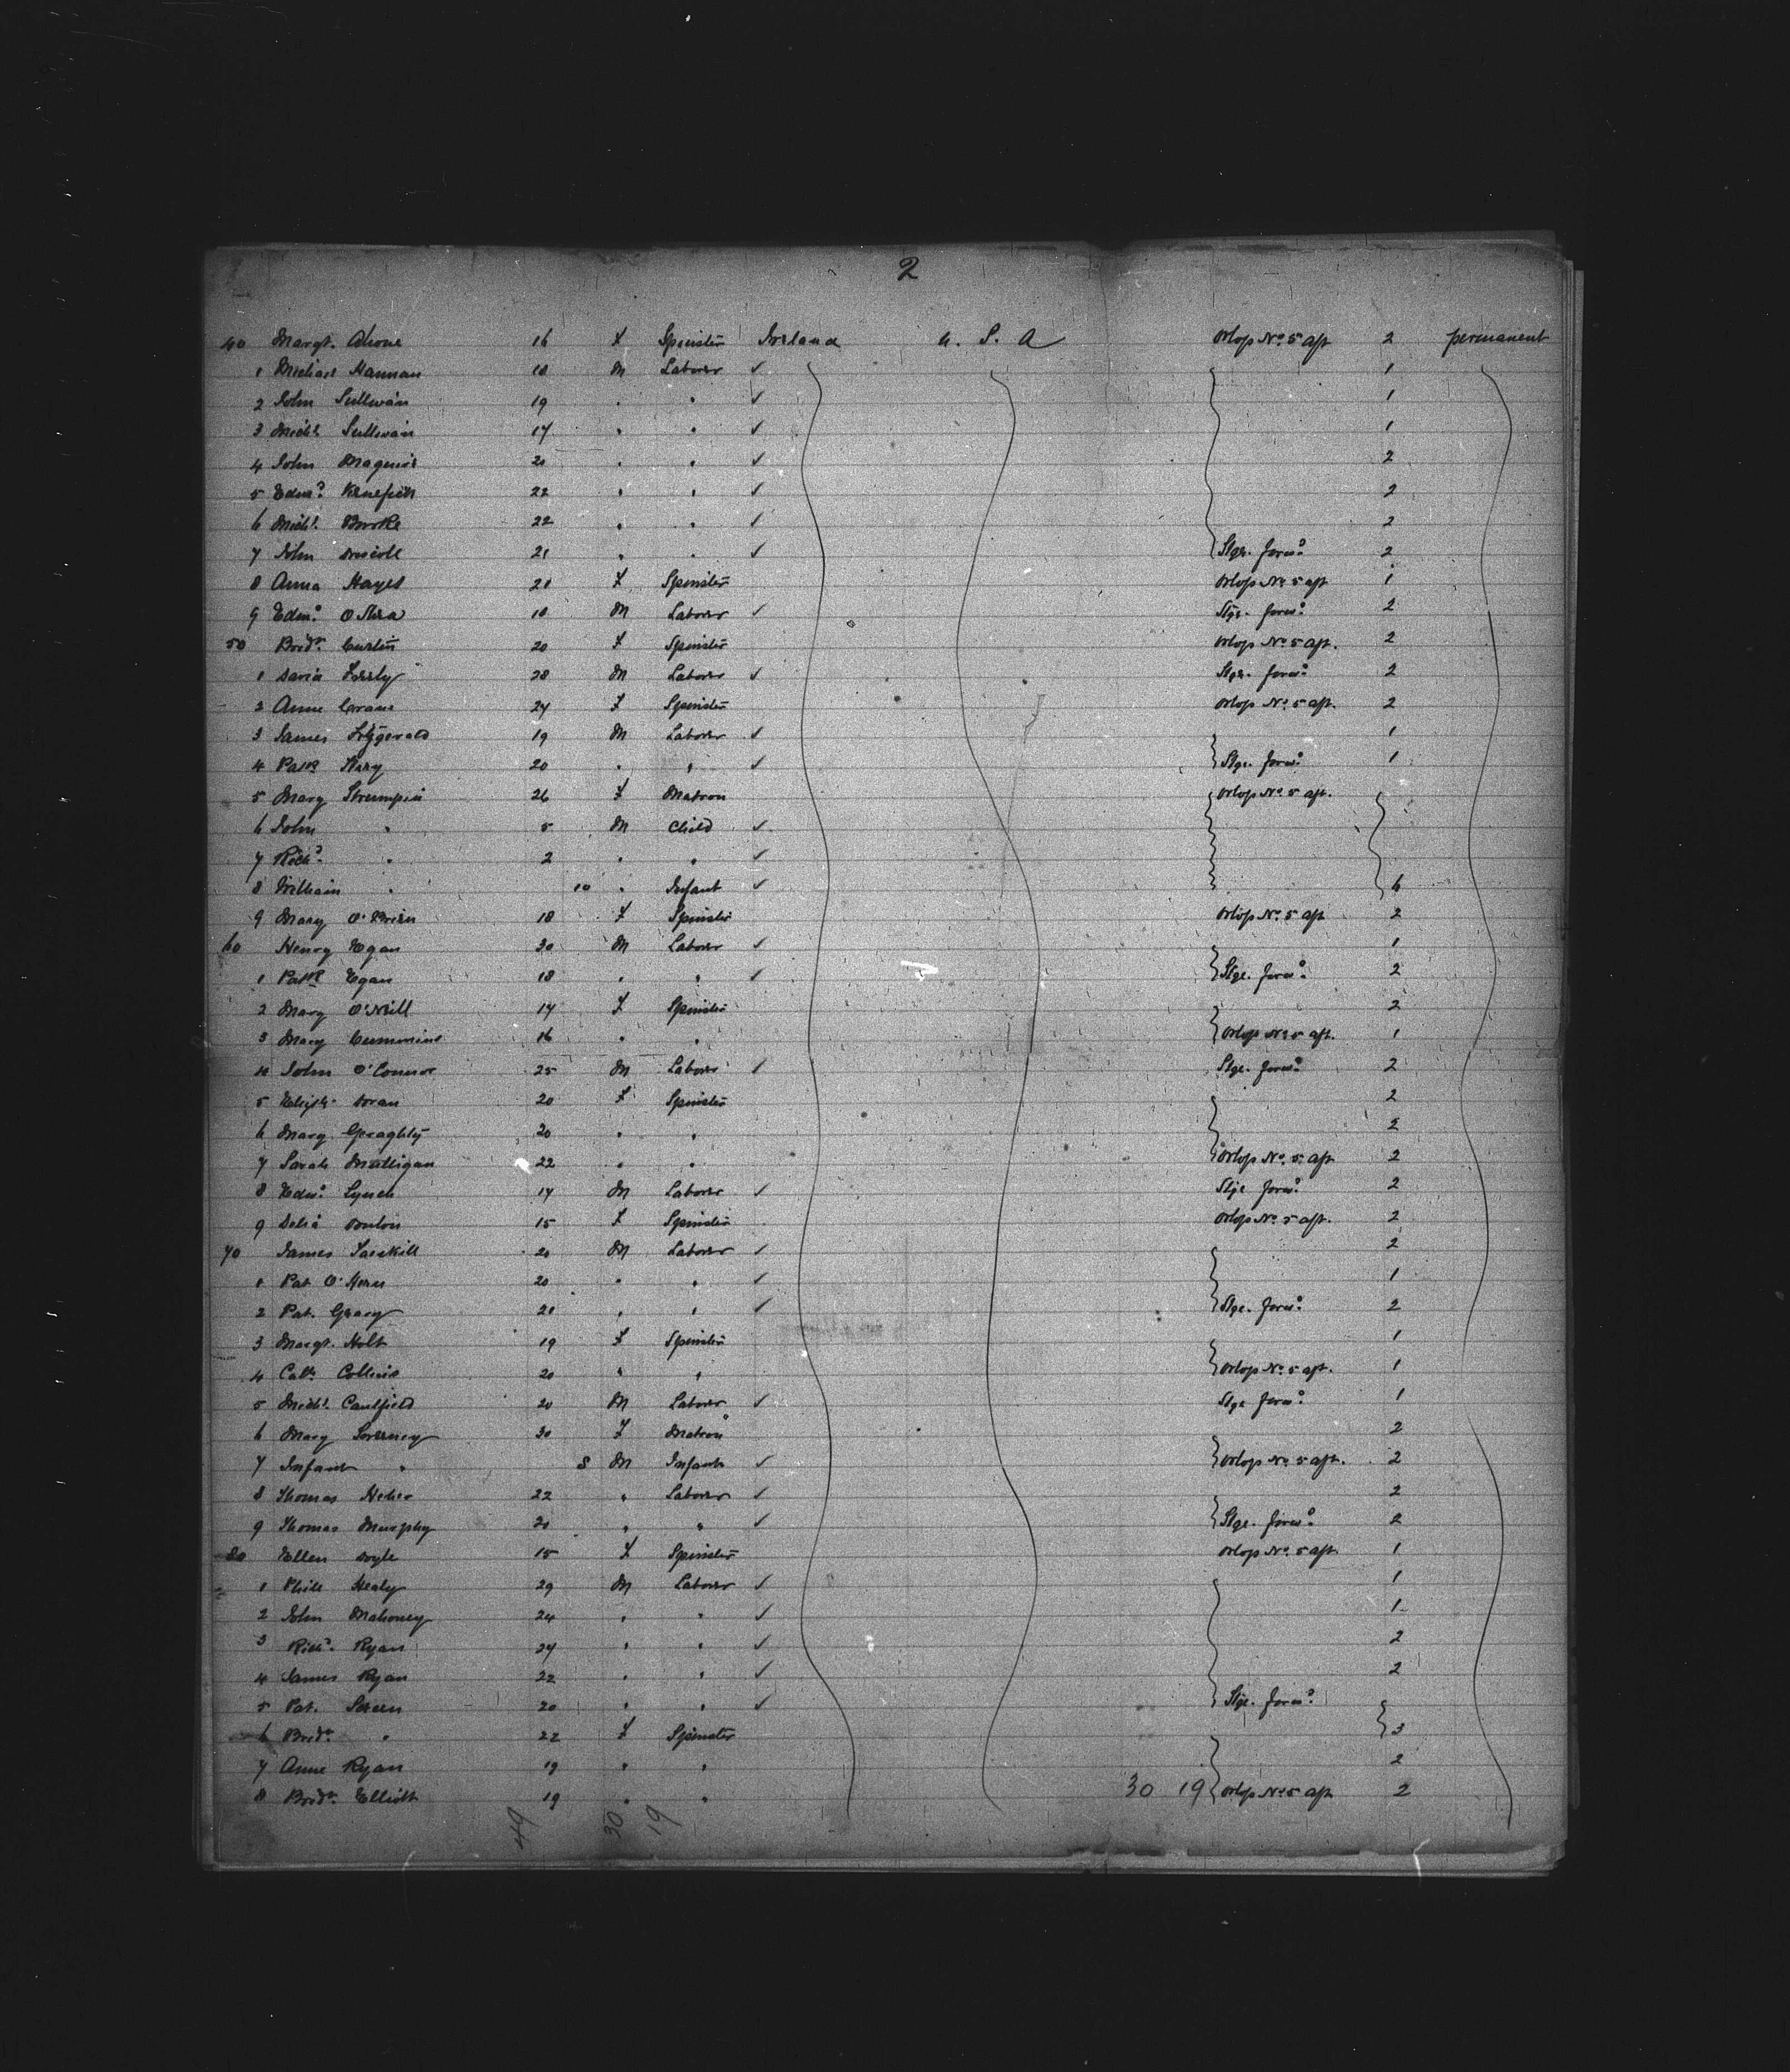 2
40 Margt. Ahone 16 F Spinster Ireland U. S. A Orlop No. 5 aft 2 permanent
1 Michael Hannan 18 M Laborer ✓ 1
2 John Sullivan 19 " " ✓ 1
3 Michl. Sullivan 17 " " ✓ 1
4 John Maguire 20 " " ✓ 2
5 Edmd. Kenefick 22 " " ✓ 2
6 Michl. Burke 22 " " ✓ 2
7 John Driscoll 21 " " ✓ Stge. forwd. 2
8 Anna Hayes 21 F Spinster Orlop No. 5 aft 1
9 Edmd. O'Shea 18 M Laborer ✓ Stge. forwd. 2
50 Bridt. Curtin 20 F Spinster Orlop No. 5 aft. 2
1 David 28 M Laborer ✓ Stge. forwd. 2
2 Anne 24 F Spinster Orlop No. 5 aft. 2
3 James Fitzgerald 19 M Laborer ✓ 1
4 Patk. 20 " " ✓ Stge. forwd. 1
5 Mary 26 F Matron Orlop No. 5 aft.
6 John " 5 M Child ✓
7 Richd. " 2 " " ✓
8 William " 10 " Infant ✓ 6
9 Mary O'Brien 18 F Spinster Orlop No. 5 aft 2
60 Henry Egan 30 M Laborer ✓ 1
1 Patk. Egan 18 " " ✓ Stge. forwd. 2
2 Mary O'Neill 17 F Spinster 2
3 Mary Cummins 16 " " Orlop No. 5 aft. 1
4 John O'Connor 25 M Laborer ✓ Stge. forwd. 2
5 Doran 20 F Spinster 2
6 Mary Geraghty 20 " " 2
7 Sarah Mulligan 22 " " Orlop No. 5 aft 2
8 Edwd. Lynch 17 M Laborer ✓ Stge forwd. 2
9 Delia 15 F Spinster Orlop No. 5 aft. 2
70 James 20 M Laborer ✓ 2
1 Pat O'Hern 20 " " ✓ 1
2 Pat. Geary 21 " " ✓ Stge. forwd. 2
3 Margt. Holt 19 F Spinster 1
4 Cath. Collins 20 " " Orlop No. 5 aft. 1
5 Michl. Caulfield 20 M Laborer ✓ Stge forwd. 1
6 Mary Sweeney 30 F Matron 2
7 Infant " 8 M Infant ✓ Orlop No. 5 aft. 2
8 Thomas 22 " Laborer ✓ 2
9 Thomas Murphy 20 " " ✓ Stge. forwd. 2
80 Ellen Doyle 15 F Spinster Orlop No. 5 aft 1
1 Phill Healy 29 M Laborer ✓ 1
2 John Mahoney 24 " " ✓ 1
3 Richd. Ryan 24 " " ✓ 2
4 James Ryan 22 " " ✓ 2
5 Pat. 20 " " ✓ Stge. forwd.
6 Bridt. " 22 F Spinster 3
7 Anne Ryan 19 " " 2
8 Bridt. Elliott 19 " " 30 19 Orlop No. 5 aft 2
30 19